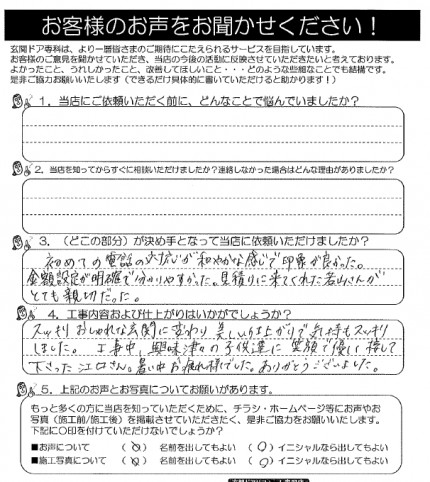 お客様のお声をお聞かせください！
玄関ドア専科は、より一層皆さまのご期待にこたえられるサービスを目指しています。
お客様のご意見を聞かせていただき、当店の今後の活動に反映させていただきたいと考えております。
よかったこと、うれしかったこと、改善してほしいこと・・・どのような些細なことでも結構です。
是非ご協力お願いいたします（できるだけ具体的に書いていただけると助かります！）
1．当店にご依頼いただく前に、どんなことで悩んでいましたか？
2．当店を知ってからすぐに相談いただけましたか？連絡しなかった場合はどんな理由がありましたか？
3．（どこの部分）が決め手となって当店に依頼いただけましたか？
初めての電話の対応が和やかな感じで印象が良かった。
金額設定が明確で分かりやすかった。見積りに来てくれた若山さんが
とても親切だった。
4．工事内容および仕上がりはいかがでしょうか？
スッキリおしゃれな玄関に変わり美しい仕上がりで気持もスッキリ
しました。工事中、興味津々の子供達に笑顔で優しく接して
下さった江口さん。暑い中お疲れ様でした。ありがとうございました。
5．上記のお声とお写真についてお願いがあります。
もっと多くの方に当店を知っていただくために、チラシ・ホームページ等にお声やお
写真（施工前/施工後）を掲載させていただきたく、是非ご協力をお願いいたします。
下記に〇印を付けていただけないでしょうか？
■お声について　（　）　名前を出してもよい　（○）イニシャルなら出してもよい
■施工写真について（　）　名前を出してもよい　（○）イニシャルなら出してもよい